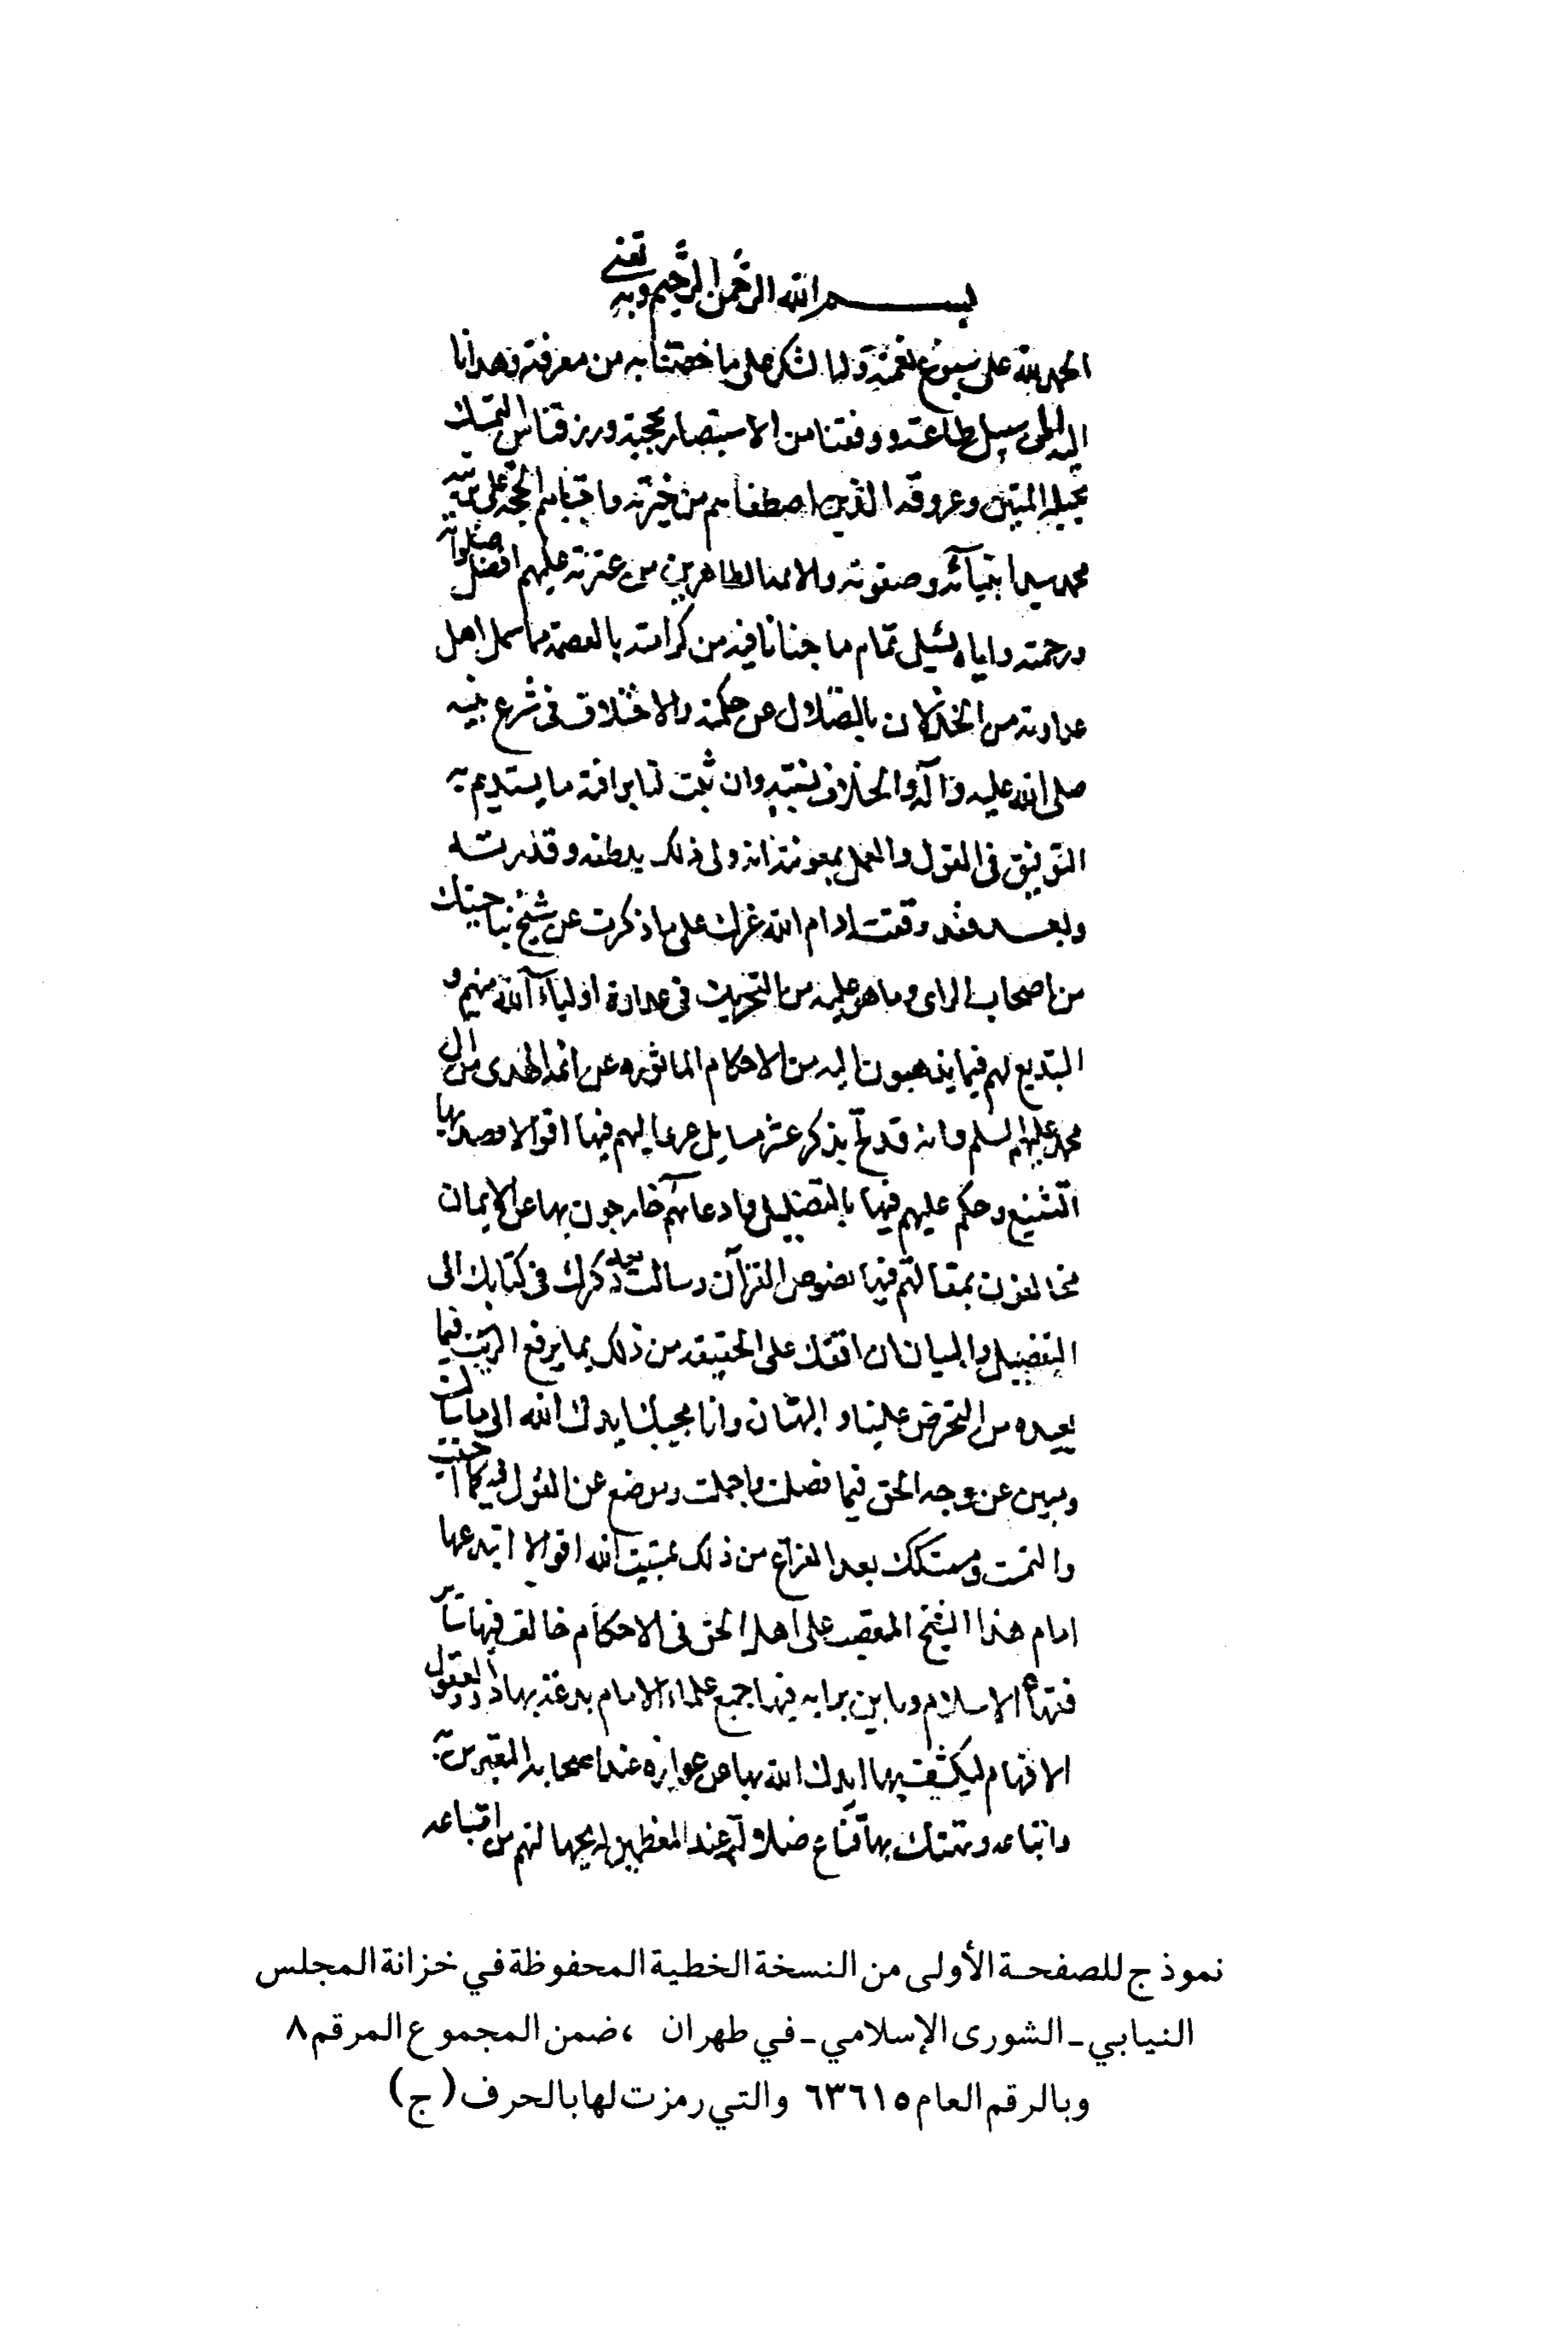 بسم الله الرحمن الرحيم وبه ثقتي
الحمد لله على سبوغ نعمته وله الشكر على ما خصنا به من معرفته وهدانا
اليه من سبيل طاعته ووفقنا من الاستبصار بحجته ورزقناه من التمسك
بحبله المتين وعروته الذين اصطفاهم من خيرته واجتباهم الحجة على بريته
محمد سيد انبيائه وصفوته والائمة الطاهرين من عترته عليهم افضل صلواته
ورحمته واياه نسئل تمام ما حبانا فيه من كرامته بالعصمة مما شمل اهل
عداوته من الخذلان بالضلال عن حكمته والاختلاف في شرع نبيه
صلى الله عليه وآله والخلاف لسنته وان يثبت لنا برافته ما يستديم به
التوفيق في القول والعمل بمعونته انه ولي ذلك بلطفه وقدرته
وبعد فقد وقفت ادام الله عزك على ما ذكرت عن شيخ بناحيتك
من اصحاب الراى وما هو عليه من التحريف في عداوة اولياء الله منهم و
التبديع لهم فيما يذهبون اليه من الاحكام الماثوره عن ائمة الهدى من ال
محمد عليهم السلم وانه قد لج بذكر عشر مسايل عزا اليهم فيها اقوالا قصد بها
التشنيع وحكم عليهم فيها بالتضليل وادعا انهم خارجون بها عن الايمان
مخالفون بمقالتهم فيها نصوص القرآن وسالت بعد ذكرك في كتابك الى
التفضيل والبيان ان اقفك على الحقيقة من ذلك بما يرفع الريب فيما
من التخرص علينا والبهتان وانا مجيبك ايدك الله الى ما سالت
ومبين عن وجه الحق فيما فصلت واجملت وموضح عن القول فيه كما احببت
والتمست بعد الفراغ من ذلك بمشيت الله اقوالا ابتدعها
امام هذا الشيخ المتعصب على اهل الحق في الاحكام خالف فيها ساير
فقهاء الاسلام وباين برايه فيها جميع علماء الانام ذوو العقول
الافهام ليكشف بها ايدك الله بها عن عواره عند اصحابه المغترين به
واتباعه وتهتك بها قناع ضلالته عند المعظمين له بجهالتهم من اتباعه
نموذج للصفحة الأولى من النسخة الخطية المحفوظة في خزانة المجلس
النيابي - الشورى الإسلامي - في طهران ، ضمن المجموع المرقم ٨
وبالرقم العام ٦٣٦١٥ والتي رمزت لها بالحرف ( ج )